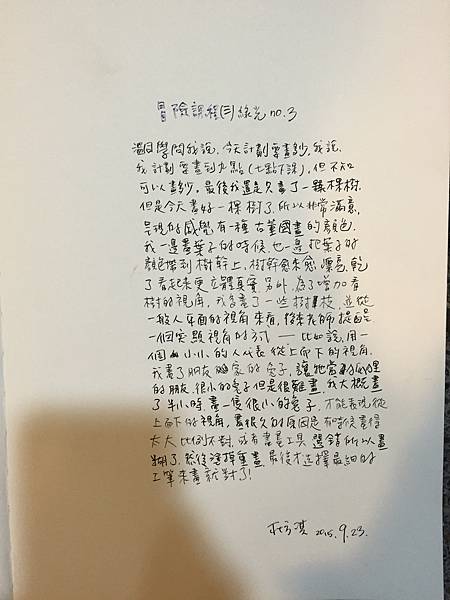 冒險課程(三)綠光 no.3
同學問我說,今天計劃要畫鈔,我說,
我計劃要畫到九點(七點下課),但不知
可以畫鈔,最後我還是只畫了一棵樹
但是今天畫好一棵樹了,所以非常滿意,
呈現的感覺有一種古董國畫的顏色.
我一邊畫葉子的時候也一邊把葉子的
顏色帶到樹幹上,樹幹愈來愈漂亮,乾
了看起來更立體真實.另外,為了增加看
樹的視角,我多畫了一些樹枝,並從
一般人平面的視角來看,後來老師提醒
一個突顯視角的方式——比如說,用一
個小小的人代表從上而下的視角.
我畫了朋友家的兔子,讓牠當
的朋友.很小的兔子但是很難畫,我大概畫
了半小時,畫一隻很小的兔子,才能表現從
上而下的視角,畫很久的原因是有時候畫得
太大比例不對,或者畫具工具選錯所以畫
糊了.然後塗掉重畫,最後才選擇最細的
工筆來畫就對了!
2015.9.23.